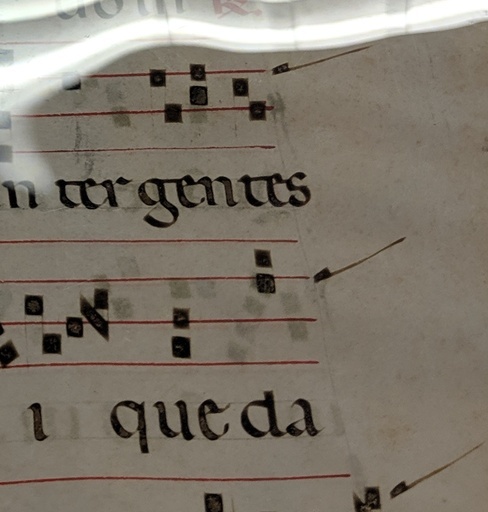 n ter gentes
i que da